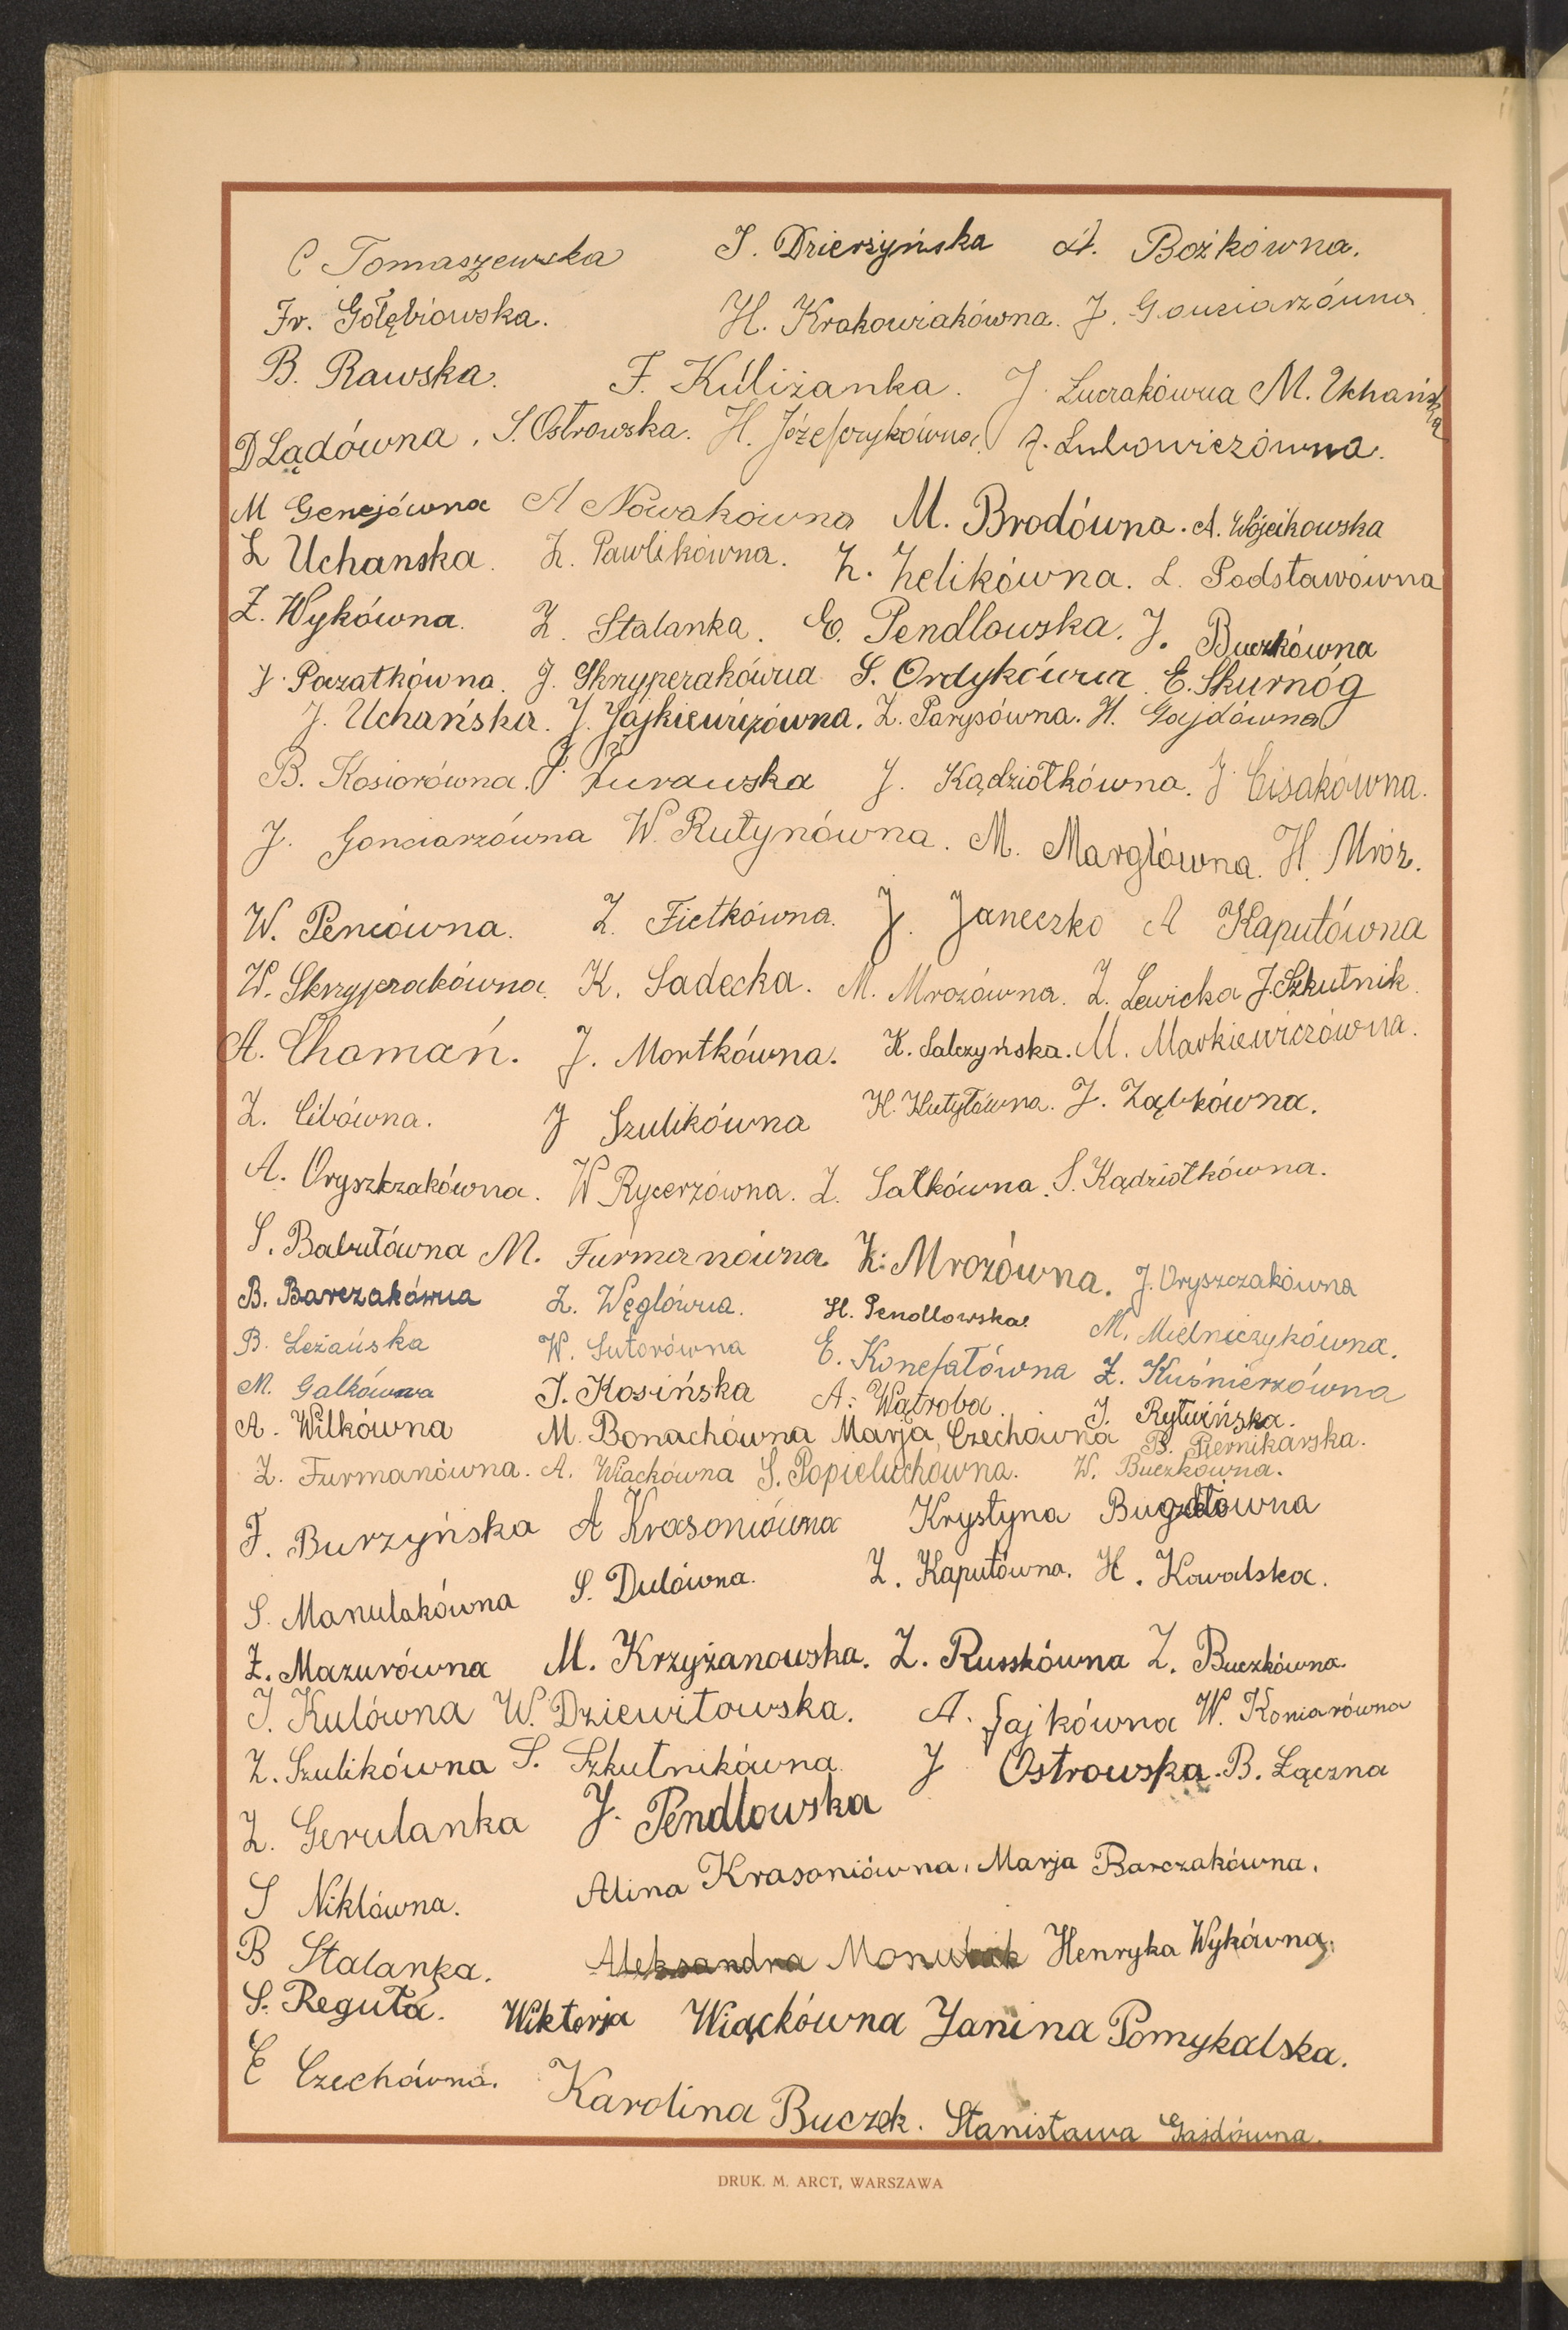 C Tomaszewska S. Dzierżyńska A. Bożkówna.
Fr. Gołębiowska. H. Krakowiakówna. J. Gonciarzówna.
B. Rawska. F. Kuliżanka. J. Luczakówna M. Uchańska
D Lądówna. S. Ostrowska. H. Józefczykówna. Z. Lutowiczówna.
M Genejówna A Nowakówna M. Brodówna. A. Wójcikowska
L Uchanska. Z. Pawlikówna. Z. Zelikówna. L. Podstawówna
Z. Wykówna. Z. Stalanka. E. Pendlowska. J. Buczkówna
J. Pazatkówna. J. Skrypczakówna S. Ordykówna. E. Skurnóg
J. Uchańska. J. Jajkiewiczówna. Z. Parysówna. H. Gajdówna
B. Kosiorówna. J. Żurawska J. Kądziołkówna. J. Cisakówna.
J. Gonciarzówna W. Rutynówna. M. Marglówna. H. Mróz.
W. Pencówna. Z. Fietkówna. J. Janeczko A Kaputówna
W. Skrzypczakówna. K. Sadecka. M. Mrozówna. Z. Lewicka J. Szkutnik.
A. Chomań. J. Mortkówna. K. Salczyńska. M. Markiewiczówna.
Z. Cibówna. J Szulikówna H. Kutyłówna. J. Ząbkówna.
A. Oryszczakówna. W Rycerzówna. Z. Sałkówna. S. Kądziołkówna.
S. Babulówna M. Furmanówna. K. Mrozówna. J. Oryszczakówna
B. Barczakówna Z. Węglówna. H. Pendlowska. M. Mielniczykówna.
B. Leżańska W. Sutorówna E. Konefałówna Z. Kuśnierzówna
M. Galkówna J. Kosińska A. Wątroba. J. Rytwińska.
A. Wilkówna M. Bonachówna Marja Czechówna B. Piernikarska.
Z. Furmanówna. A. Wiackówna S. Popieluchówna. W. Buczkówna.
F. Burzyńska A Krasoniówna Krystyna Bugdłówna
S. Manulakówna S. Dulówna. Z. Kaputówna. H. Kowalska.
Z. Mazurówna M. Krzyżanowska. Z. Russkówna Z. Buczkówna.
J. Kulówna W. Dziewitowska. A. Sajkówna W. Koniarówna
Z. Szulikówna S. Szkutnikówna. J Ostrowska. B. Łączna
Z. Gerulanka J. Pendlowska
S Niklówna. Alina Krasoniówna. Marja Barczakówna.
B Stalanka. Aleksandra Monulak Henryka Wykówna.
S. Reguła. Wiktorja Wiąckówna Janina Pomykalska.
E Czechówna. Karolina Buczek. Stanisława Gajdówna.
DRUK. M. ARCT, WARSZAWA